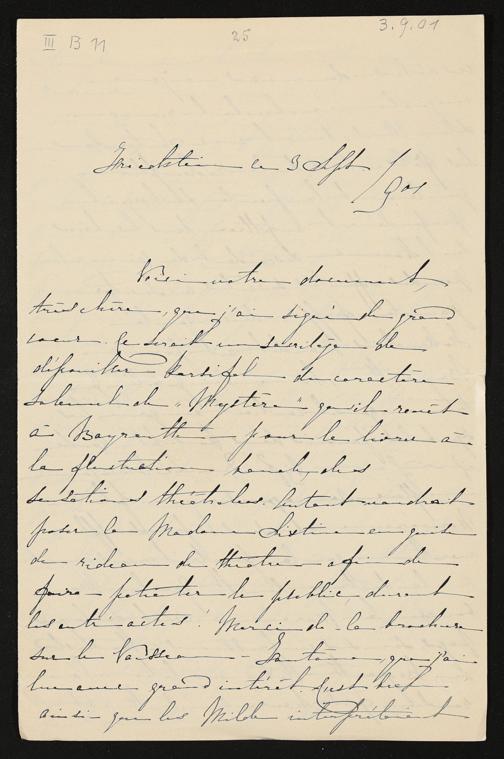 III B 11
25
3.9.01
Friedstein ce 3 Sept
/901
Voici votre document,
très chère, que j'ai signé de grand
coeur. Ce serait un sacrilège de
dépouiller Parsifal du caractère
solennel de "Mystère" qu'il revêt
à Bayreuth – pour le livrer à
la fluctuation banale des
sensations théâtrales. Autant vaudrait
poser la Madone Sixtine en guise
de rideau de théâtre afin de
faire patienter le public durant
les entr'actes! Merci de la brochure
sur le Vaisseau-Fantôme, que j'ai
lue avec grand intérêt. C'est bien
ainsi que les Milde interprétaient